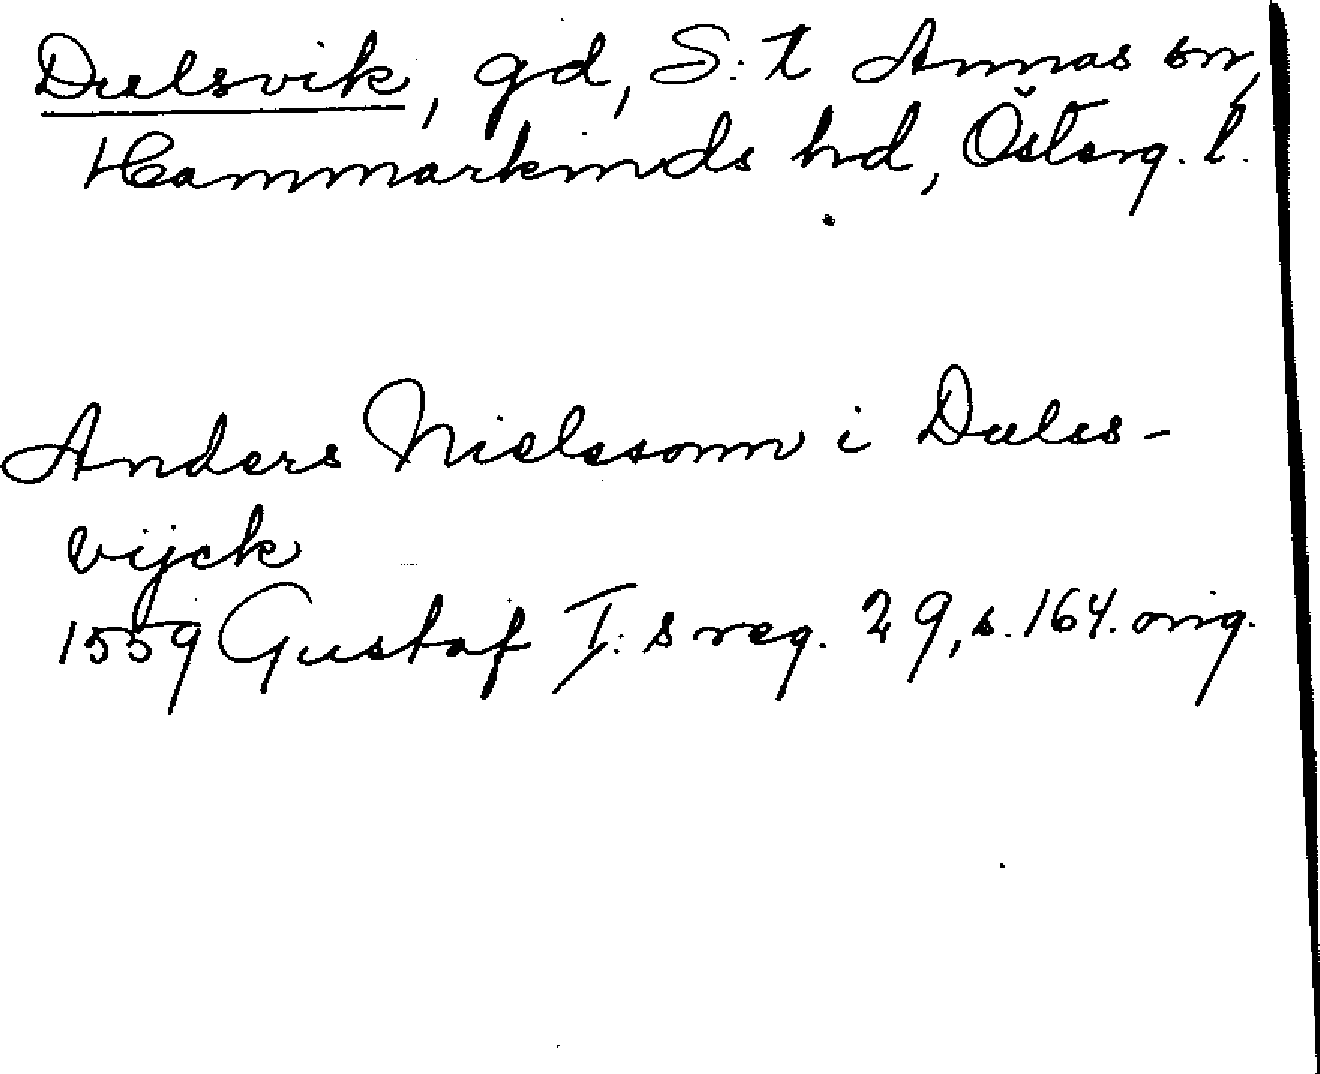 Dulsvik, gd, S:t Annas sn,
Hammarkinds hd, Österg. l.
Anders Nielssonn i Duless-
vijck
1559 Gustaf I:s reg. 29, s. 164. orig.